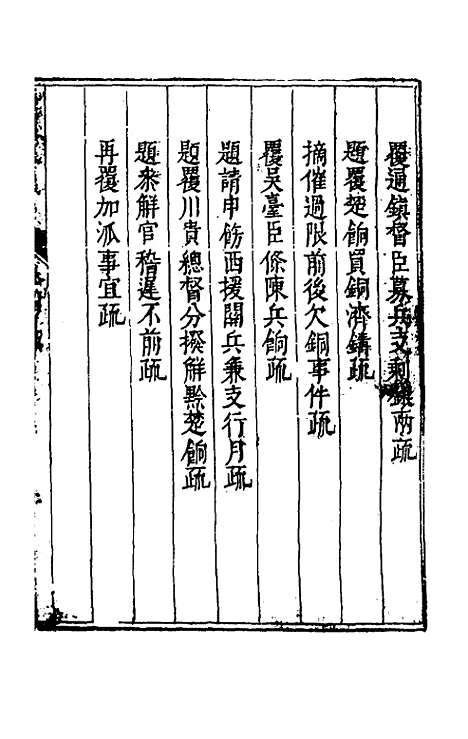 覆通鎮督臣募兵支剩銀兩疏
題覆楚餉買銅濟鑄疏
摘催過限前後欠銅事件疏
覆吳臺臣條陳兵餉疏
題請申飭西援關兵兼支行月疏
題覆川貴總督分撥解黔楚餉疏
題參解官稽遲不前疏
再覆加派事宜疏